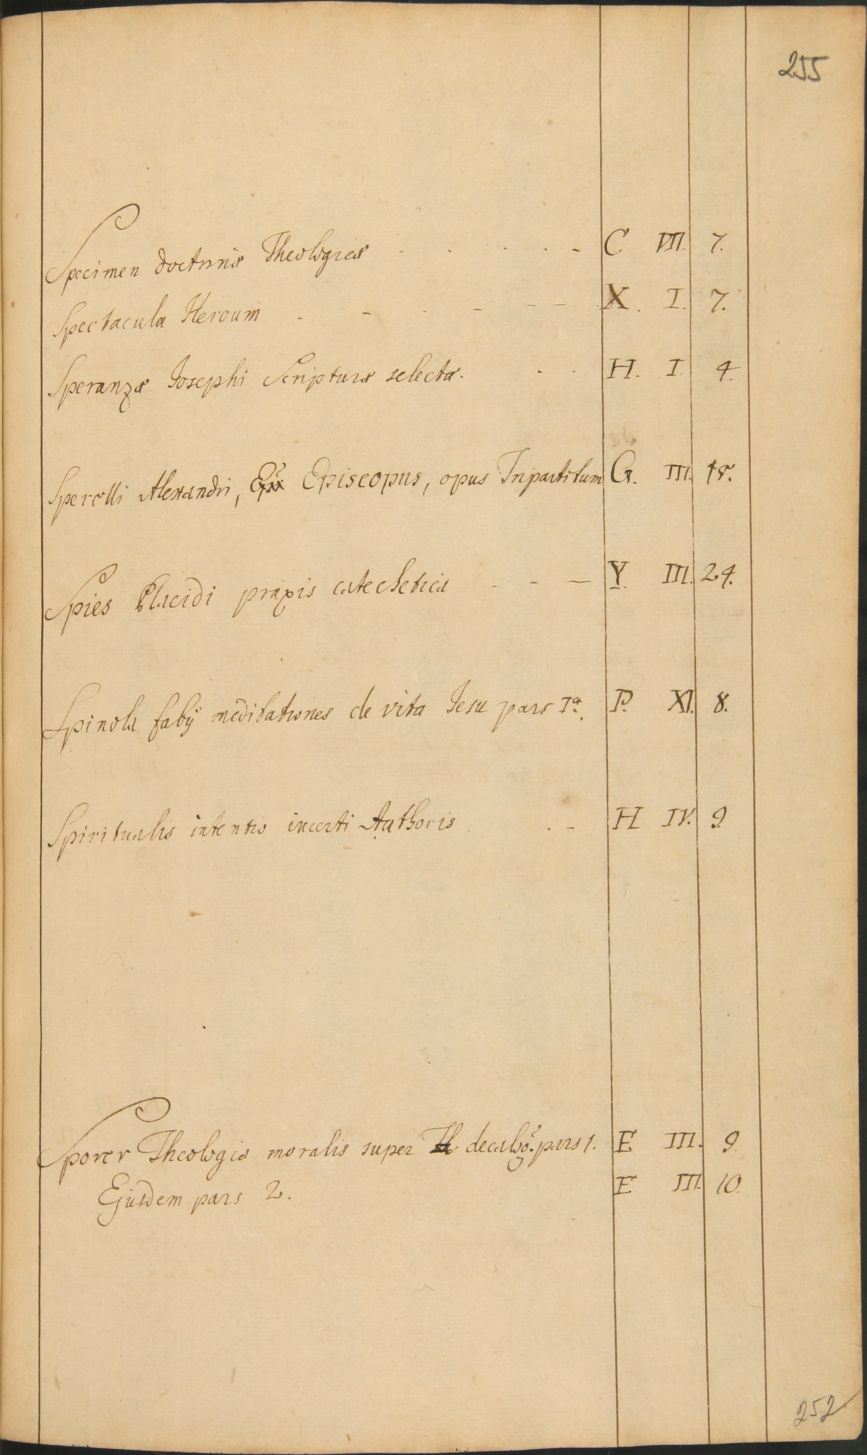 255
Specimen doctrinæ Theologicæ - - - - - C VII. 7.
Spectacula Heroum - - - - - - X. I. 7.
Speranzæ Josephi Scripturæ selectæ. - - H. I 4.
Sperelli Alexandri, Episcopus, opus Tripartitum G. III. 18.
Spies Placidi praxis catechetica - - - Y III. 24.
Spinola fabij meditationes de vita Jesu pars Iª. P. XI. 8.
Spiritualis intentio incerti Authoris - - H IV. 9.
Sporer Theologia moralis super decalog. pars 1. E III. 9.
Ejusdem pars 2. E III. 10.
252